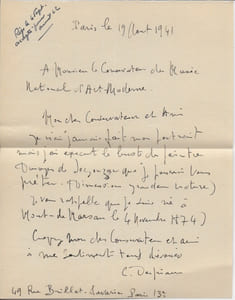 Paris le 19 Août 1941
A Monsieur le Conservateur du Musée
National d'Art Moderne.
Mon cher Conservateur et Ami
je n'ai jamais fait mon portrait
mais j'ai executé le buste du peintre
Dunoyer de Segonzac que je pourrais vous
prêter. (Dimension grandeur nature)
je vous rappelle que je suis né à
Mont-de-Marsan le 4 Novembre 1874)
Croyez Mon cher Conservateur et ami
à mes sentiments tout dévoués
C. Despiau
49 Rue Brillat-Savarin Paris 13e